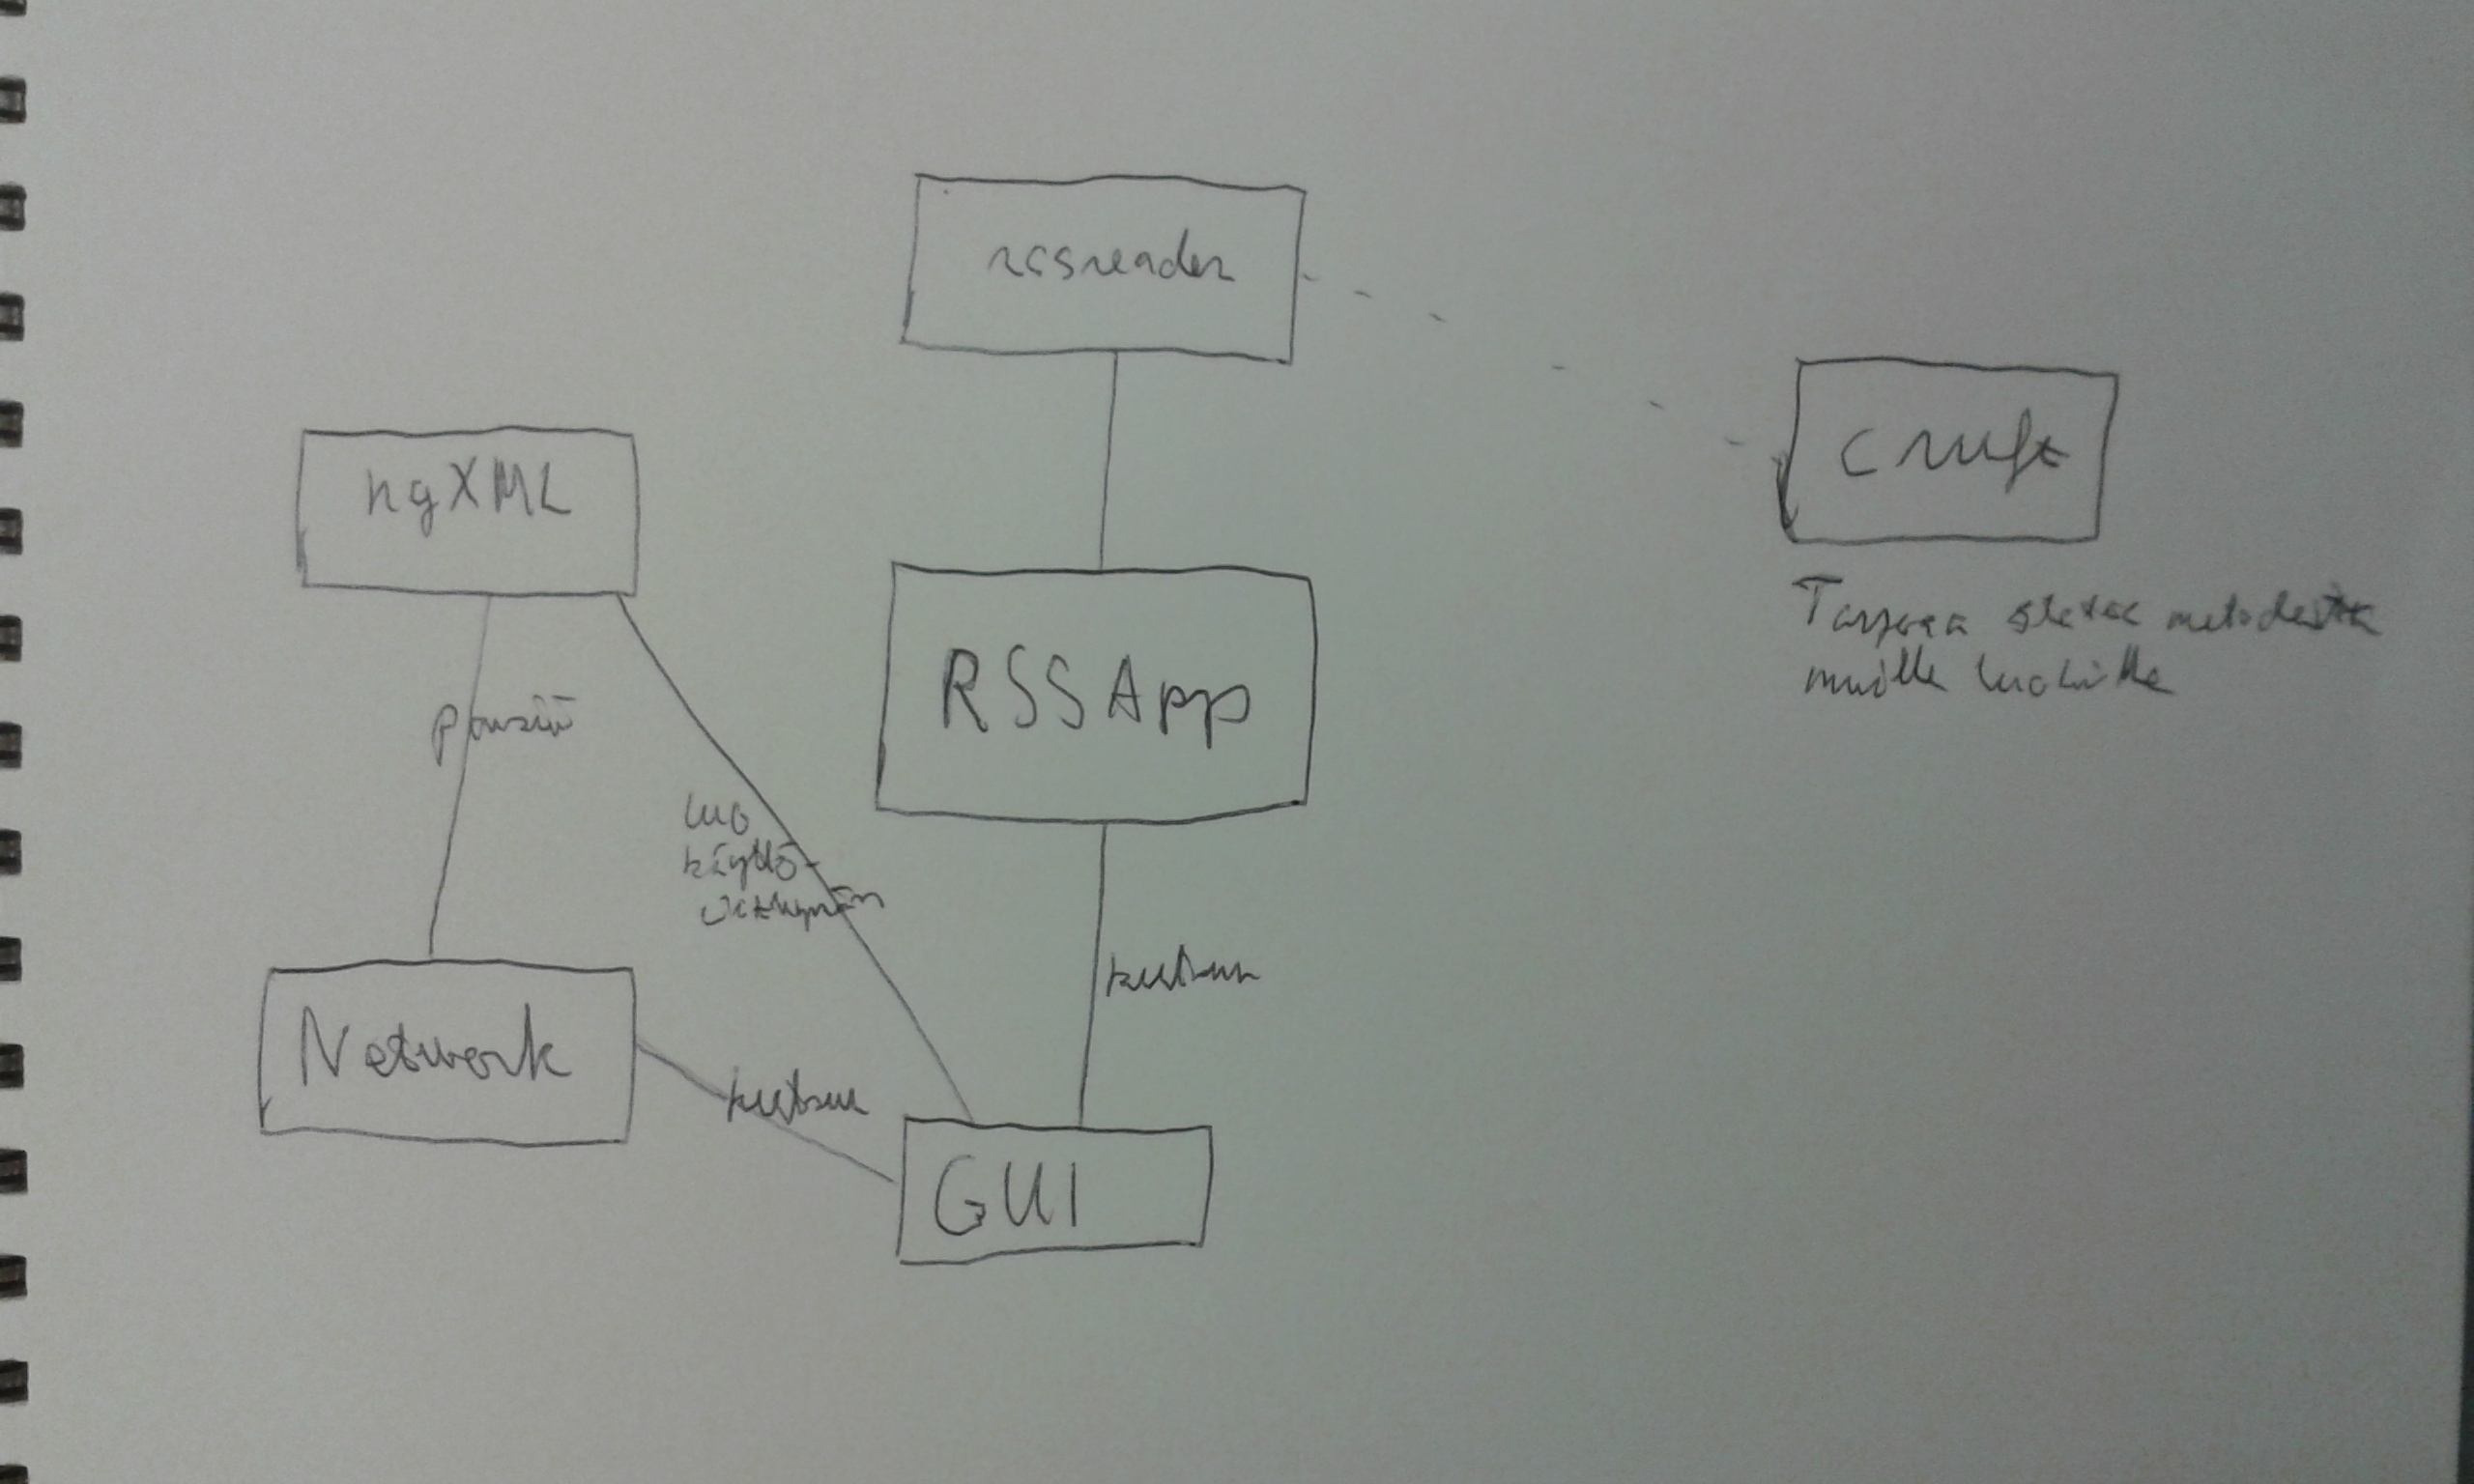 rssreader
cruft
ngXML
Tarjoaa static metodeita
muille luokille
RSSApp
parsii
luo
käyttö-
liittymän
kutsuu
Network
kutsuu
GUI